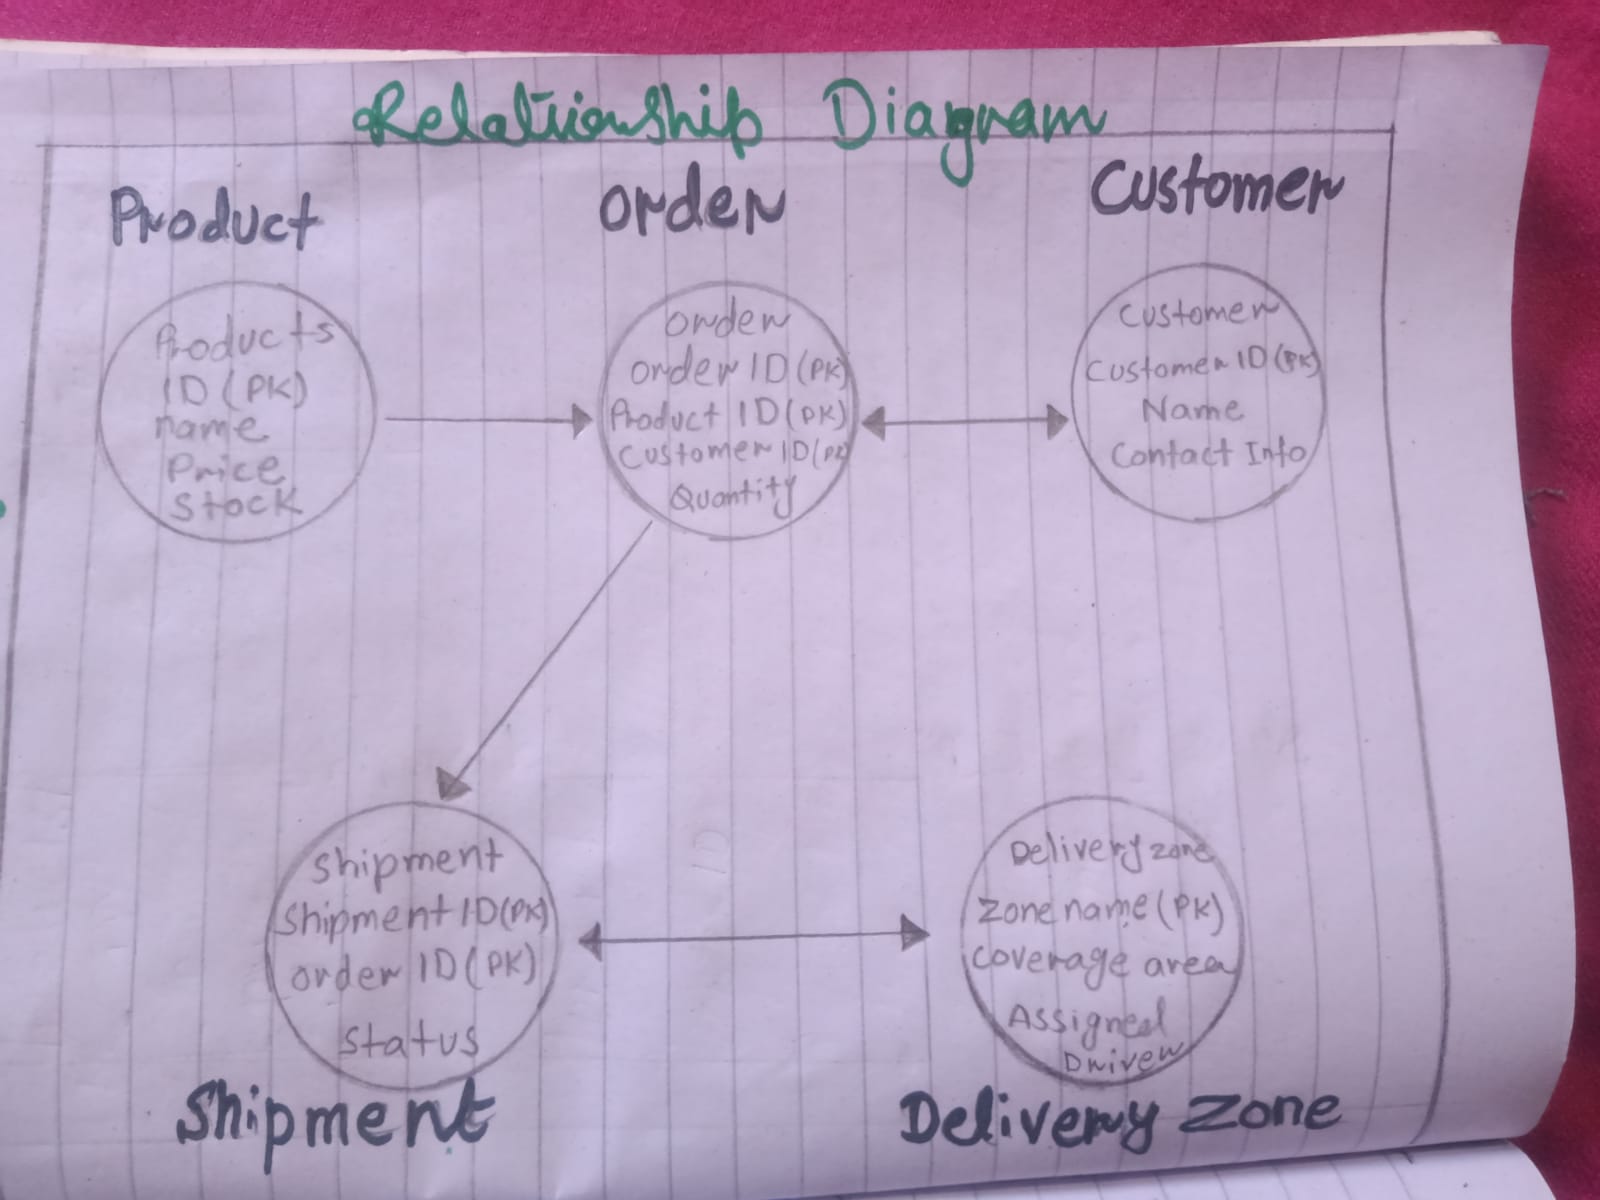 Relationship Diagram
Product
order
Customer
Products
ID (PK)
name
Price
Stock
order
order ID (PK)
Product ID (PK)
Customer ID (PK)
Quantity
Customer
Customer ID (PK)
Name
Contact Info
Shipment
Shipment ID (PK)
order ID (PK)
Status
Shipment
Delivery zone
Zone name (PK)
Coverage area
Assigned
Driver
Delivery Zone